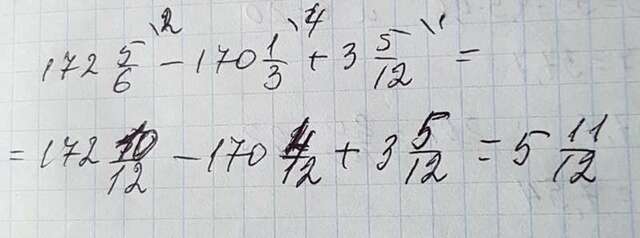 172 5/6 \2 - 170 1/3 \4 + 3 5/12 \1 =
= 172 10/12 - 170 4/12 + 3 5/12 = 5 11/12